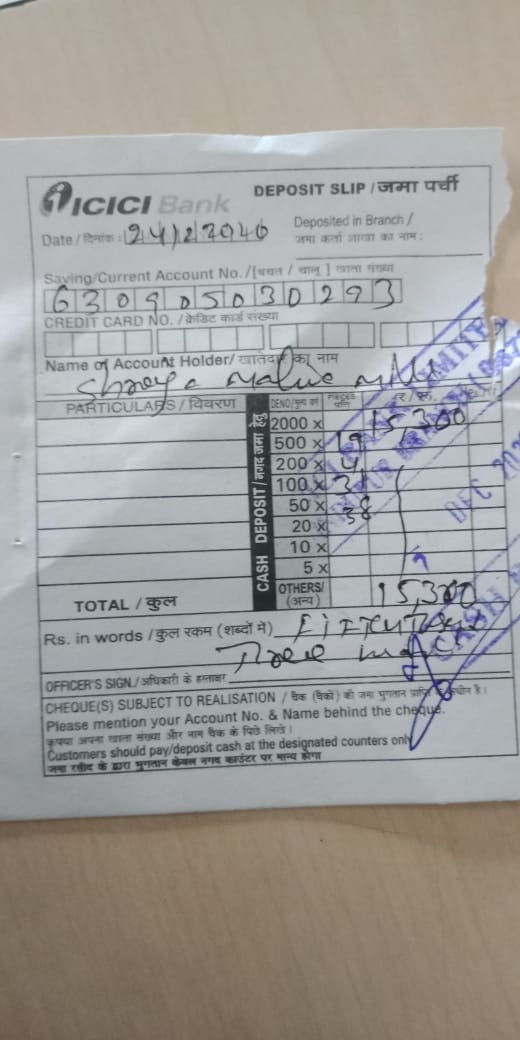 ICICI Bank DEPOSIT SLIP / जमा पर्ची
Date / दिनांक : 24/12 Deposited in Branch /
जमा कर्ता शाखा का नाम :
Saving/Current Account No./[बचत / चालू ] खाता संख्या
630905030293
CREDIT CARD NO. / क्रेडिट कार्ड संख्या
Name of Account Holder/ खातेदार का नाम
Shreya value
PARTICULARS / विवरण DENO/मूल्य वर्ग PIECES
CASH DEPOSIT/नगद जमा हेतु
2000 x 15,300
500 x 19
200 x 4
100 x
50 x 38
20 x
10 x
5 x
OTHERS/ (अन्य)
TOTAL / कुल 15,300
Rs. in words / कुल रकम (शब्दों में)
Three
OFFICER'S SIGN./अधिकारी के हस्ताक्षर
CHEQUE(S) SUBJECT TO REALISATION / चैक (चैकों) की जमा भुगतान प्राप्ति के अधीन है।
Please mention your Account No. & Name behind the cheque.
कृपया अपना खाता संख्या और नाम चैक के पिछे लिखे।
Customers should pay/deposit cash at the designated counters only
जमा रसीद के द्वारा भुगतान केवल नगद काउंटर पर मान्य होगा
DEC
CASH